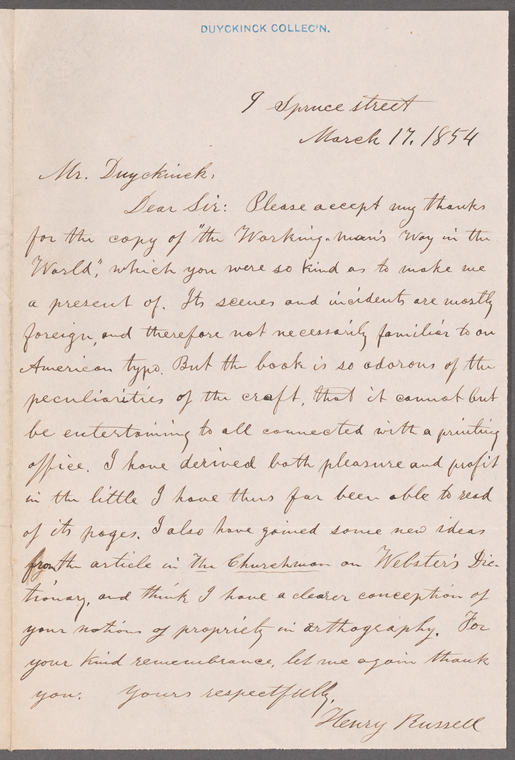 DUYCKINCK COLLEC'N.
9 Spruce street
March 17, 1854
Mr. Duyckinck,
Dear Sir: Please accept my thanks
for the copy of "the Working-man's Way in the
World," which you were so kind as to make me
a present of. Its scenes and incidents are mostly
foreign, and therefore not necessarily familiar to an
American typo. But the book is so odorous of the
peculiarities of the craft, that it cannot but
be entertaining to all connected with a printing
office. I have derived both pleasure and profit
in the little I have thus far been able to read
of its pages. I also have gained some new ideas
from the article in the Churchman on Webster's Dic-
tionary, and think I have a clearer conception of
your notions of propriety in orthography. For
your kind remembrance, let me again thank
you. Yours respectfully,
Henry Russell